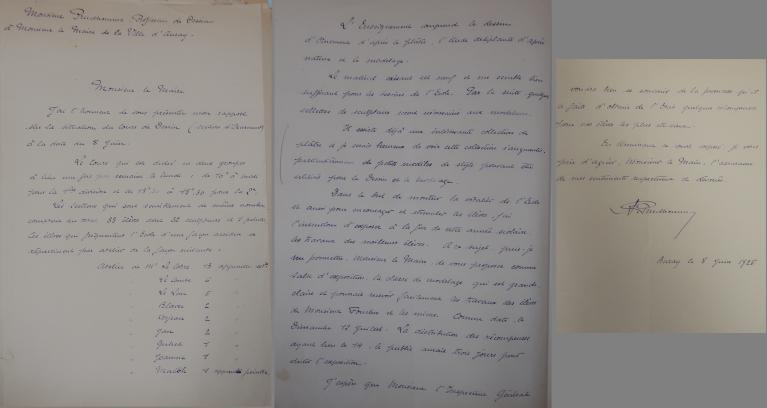 Monsieur Prudhomme Professeur de Dessin
à Monsieur le Maire de la Ville d'Auray.
Monsieur le Maire
J'ai l'honneur de vous présenter mon rapport
sur la situation du cours de Dessin
à la date du 8 Juin.
Le cours qui est divisé en deux groupes
a lieu une fois par semaine le lundi : de
pour la 1ère division et de à 18.30 pour la 2e.
Les sections qui sont sensiblement de même nombre
comptent élèves dont sculpteurs et peintres
Les élèves qui fréquentent l'Ecole d'une façon assidue se
répartissent par atelier de la façon suivante :
Atelier de Mr Le Corre 13 apprentis
" Le Combe 6 "
" Le Loir 5 "
" 2 "
" 2 "
" Jan 2 "
" Guillot 1 "
" Jeanne 1 "
" apprentis peintres
L'Enseignement comprend le dessin
d'Ornement d'après le plâtre, l'étude de plante d'après
nature et le modelage.
Le matériel actuel est neuf et me semble bien
suffisant pour les besoins de l'Ecole. Par la suite quelques
sellettes de sculpteurs seront nécessaires aux modeleurs.
Il existe déjà une intéressante collection de
plâtres et je serais heureux de voir cette collection s'augmenter,
particulièrement de petits modèles de style pouvant être
utilisés pour le Dessin et le modelage.
Dans le but de montrer la vitalité de l'Ecole
et aussi pour encourager et stimuler les élèves j'ai
l'intention d'exposer à la fin de cette année scolaire
les travaux des meilleurs élèves. A ce sujet puis-je
me permettre, Monsieur le Maire, de vous proposer comme
salle d'exposition, la classe de modelage qui est grande
claire et pourrait recevoir facilement les travaux des élèves
de Monsieur et les miens. Comme date, le
Dimanche 12 Juillet. La distribution des récompenses
ayant lieu le 14, le public aurait trois jours pour
visiter l'exposition.
J'espère que Monsieur l'Inspecteur Général
voudra bien se souvenir de la promesse qu'il
a faite d'obtenir de l'Etat quelques récompenses
pour nos élèves les plus sérieux.
En vous je vous
prie d'agréer, Monsieur le Maire, l'assurance
de mes sentiments respectueux et dévoués
Prudhomme
Auray le 8 Juin 1925